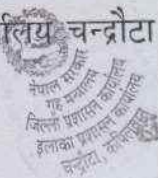 लय चन्द्रौटा
नेपाल सरकार
गृह मन्त्रालय
जिल्ला प्रशासन कार्यालय
इलाका प्रशासन कार्यालय
चन्द्रौटा, कपिलवस्तु